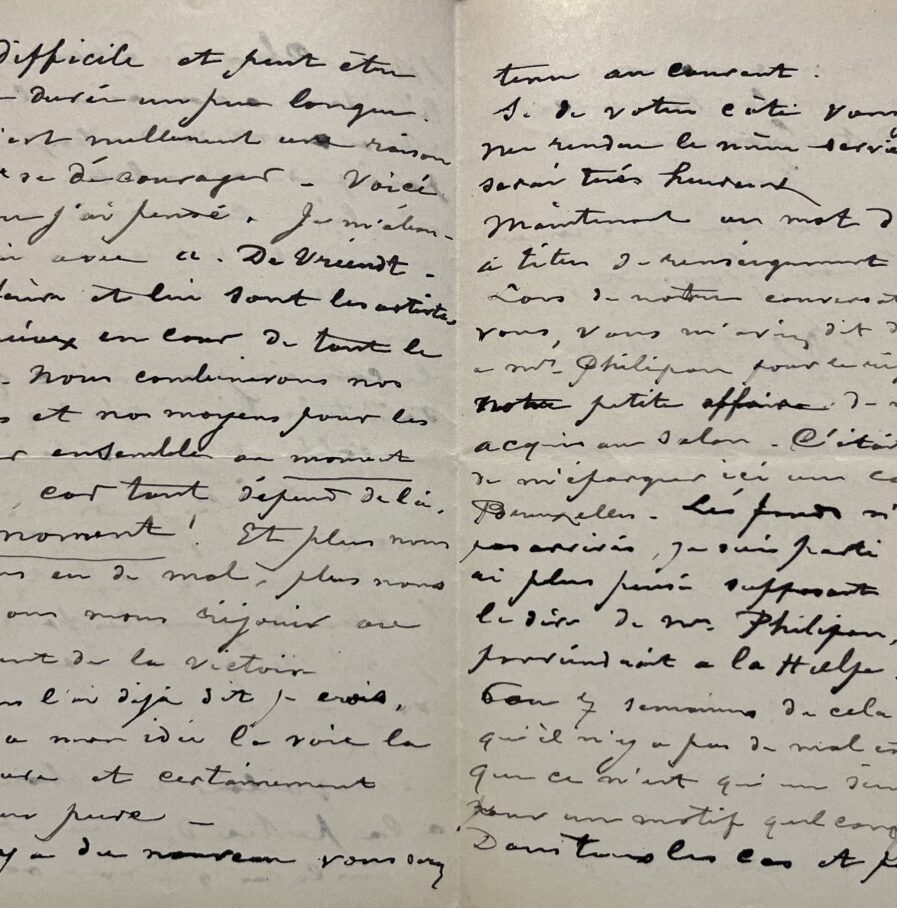 difficile et peut être
durée un peu longue.
'est nullement une raison
se décourager - Voici
j'ai pensé. Je m'abou-
avec A. De Vriendt -
et lui sont les artistes
mieux en cour de tout le
- Nous combinerons nos
s et nos moyens pour les
r ensemble au moment
, car tout dépend de là,
moment! Et plus nous
ns eu de mal, plus nous
ons nous réjouir au
ent de la victoire
us l'ai déjà dit je crois,
a mon idée la voie la
sure et certainement
pure -
y a du nouveau vous serez
tenu au courant.
Si de votre côté vous
me rendre le même servi
serai très heureux
Maintenant un mot d
à titre de renseignement
Lors de notre conversat
vous, vous m'aviez dit d
a Mr. Philipon pour le règ
notre petite affaire de
acquis au Salon - C'étai
de m'épargner ici un co
Bruxelles - Les fonds n'
pas arrivés, je suis parti
ai plus pensé supposant
le dire de Mr. Philipon,
parviendrait a la Hulpe
6 ou 7 semaines de cela
qu'il n'y a pas de mal e
que ce n'est qu'un
pour un motif quelconq
Dans tous les cas et p